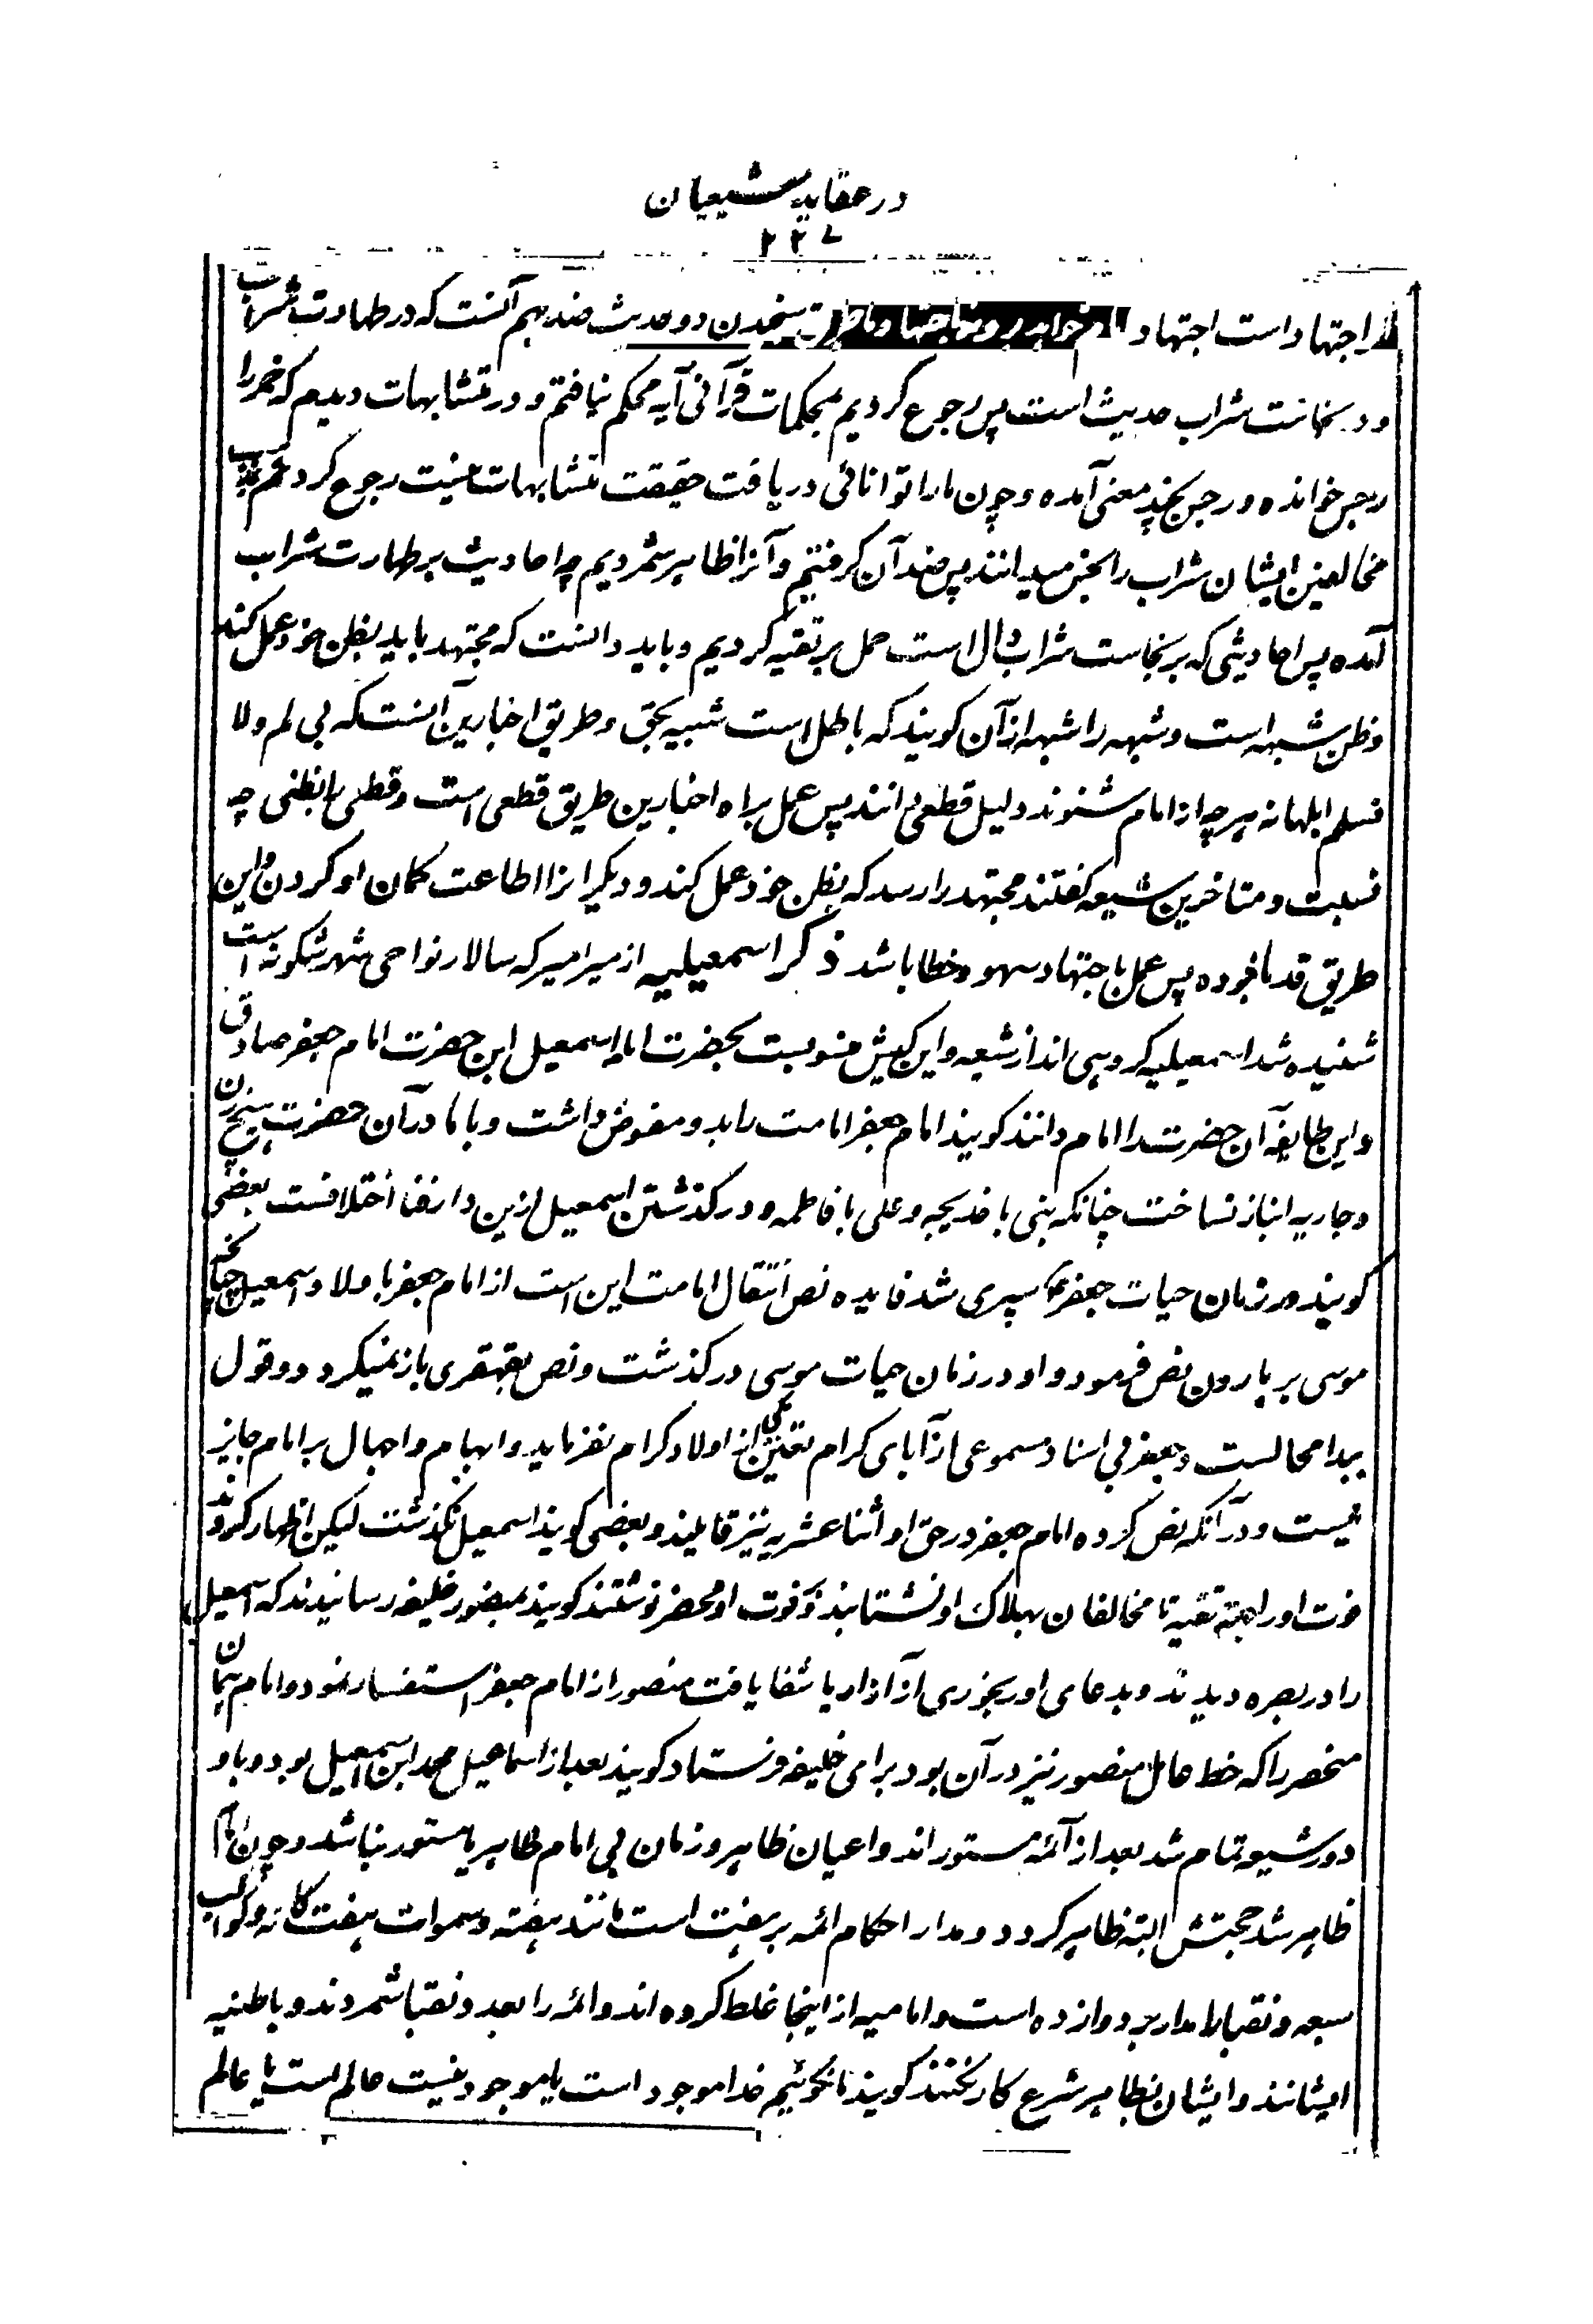 در عقاید شیعیان
۲۲۷
اجتهاد است اجتهاد سنجیدن دو حدیث ضد هم آنست که در طهارت شراب
و در نجاست شراب حدیث است پس رجوع کردیم بمحکمات قرآنی آیه محکم نیافتم و در متشابهات دیدم که خمر را
رجس خوانده و رجس بچند معنی آمده و چون ما را توانائی دریافت حقیقت متشابهات نیست رجوع کردیم
مخالفین ایشان شراب را نجس میدانند پس ضد آن گرفتیم و آنرا طاهر شمردیم چه احادیث بر طهارت شراب
آمده پس احادیثی که بر نجاست شراب دال است حمل بر تقیه کردیم و باید دانست که مجتهد باید بظن خود عمل کند
و ظن شبهه است و شبهه را شبهه از آن کویند که باطل است شبیه بحق و طریق اخبارین آنست که بی لم و لا
نسلم ابلهانه هرچه از امام شنوند دلیل قطعی دانند پس عمل براه اخبارین طریق قطعی است و قطعی را بظنی چه
نسبت و متاخرین شیعه کفتند مجتهد را رسد که بظن خود عمل کند و دیکرانرا اطاعت کمان او کردن و این
طریق قدما نبوده پس عمل باجتهاد سهو و خطا باشد ذکر اسمعیلیه از میر امیر که سالار نواحی شهر شکونه است
شنیده شد اسمعیلیه کروهی اند از شیعه و این کیش منسوبست بحضرت امام اسمعیل ابن حضرت امام جعفر صادق
و این طایفه آن حضرت را امام دانند کویند امام جعفر امامت را بدو مفوض داشت و با مادر آن حضرت هیچ زن
و جاریه انباز نساخت چنانکه نبی با خدیجه و علی با فاطمه و در کذشتن اسمعیل ازین دار فنا اختلافست بعضی
کویند در زمان حیات جعفر سپری شد فایده نص انتقال امامت این است از امام جعفر باولاد اسمعیل چنانکه
موسی بر هارون نص فرمود و او در زمان حیات موسی در کذشت و نص بقهقری باز نمیکردد و قول
ببدا محالست و جعفر بی اسناد مسموعی از آبای کرام تعین یکی از اولاد کرام نفرماید و ابهام و اجمال بر امام جایز
نیست و در آنکه نص کرده امام جعفر در حق او اثنا عشریه نیز قایلند و بعضی کویند اسمعیل نکذشت لیکن اظهار کردند
فوت او را بجهة تقیه تا مخالفان بهلاک او نشتابند و بر فوت او محضر نوشتند کویند بمنصور خلیفه رسانیدند که اسمعیل
را در بصره دیدند و بدعای او رنجوری از آزار پا شفا یافت منصور از امام جعفر استفسار نمود و امام همان
محضر را که خط عامل منصور نیز در آن بود برای خلیفه فرستاد کویند بعد از اسماعیل محمد ابن اسمعیل بود و باو
دور سبعه تمام شد بعد از آئمه مستوراند و اعیان ظاهر و زمان بی امام ظاهر یا مستور نباشد و چون امام
ظاهر شد حجتش البته ظاهر کردد و مدار احکام ائمه بر هفت است مانند هفته و سموات هفت کانه و کواکب
سبعه و نقبا را مدار بر دوازده است و امامیه از اینجا غلط کرده اند و ائمه را بعدد نقبا شمردند و باطنیه
ایشانند و ایشان بظاهر شرع کار نکنند کویند ما نکوئیم خدا موجود است یا موجود نیست عالم است یا عالم